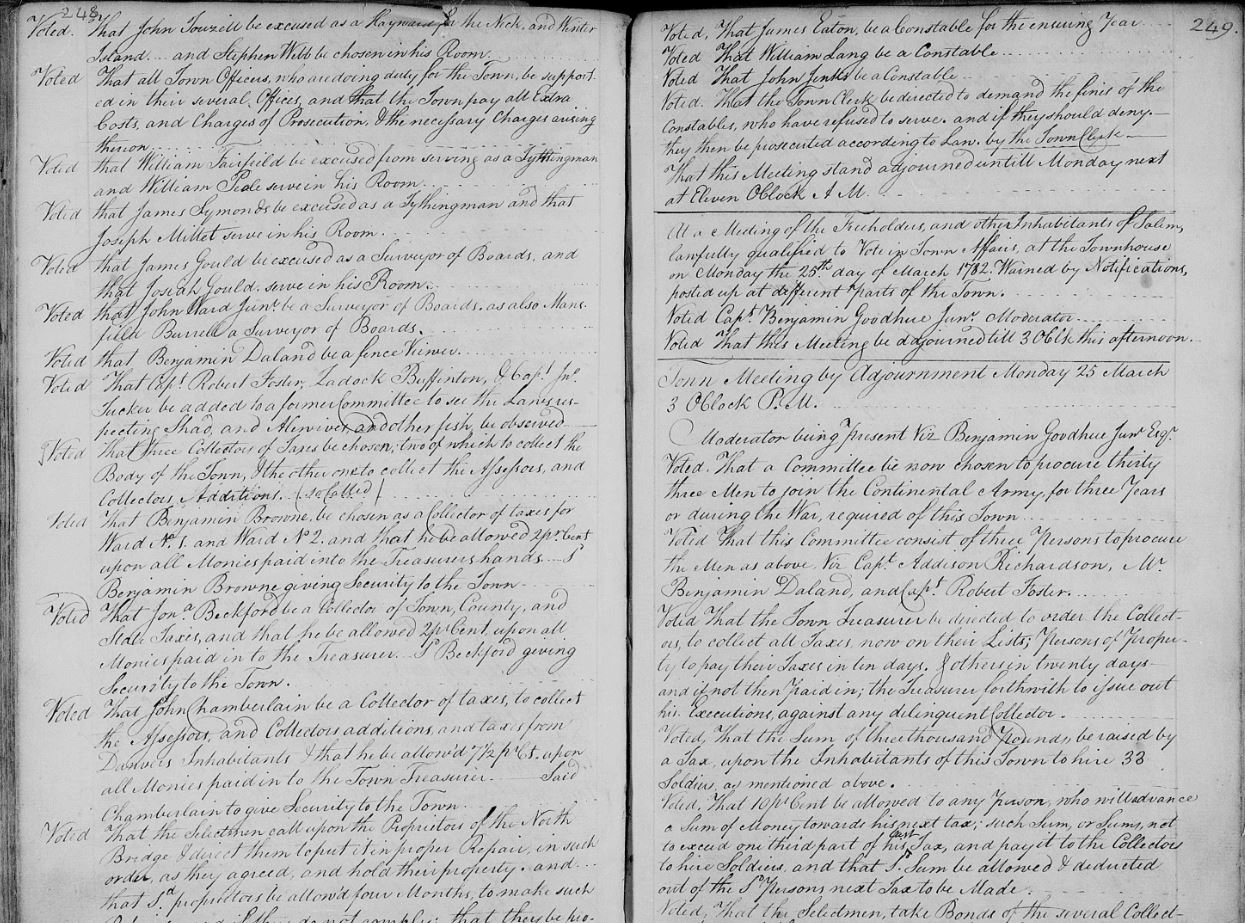 248
Voted. That John Towzell be excused as a Hayward for the Neck, and Winter
Island. and Stephen Webb be chosen in his Room
Voted That all Town Officers, who are doing duty for the Town, be support-
ed in their several Offices, and that the Town pay all Extra
Costs, and Charges of Prosecution, & the necessary Charges arising
thereon
Voted that William Fairfield be excused from serving as a Tythingman
and William Peele serve in his Room.
Voted that James Symonds be excused as a Tythingman and that
Joseph Millet serve in his Room.
Voted that James Gould be excused as a Surveyor of Boards, and
that Josiah Gould. serve in his Room.
Voted that John Ward Junr. be a Surveyor of Boards. as also Mans
field Burrell a Surveyor of Boards.
Voted that Benjamin Daland be a fence Viewer
Voted That Capt. Robert Foster, Zadock Buffinton, & Capt. Jno.
Tucker be added to a former Committee to see the Laws res-
pecting Shad, and Alewives, and other fish, be observed
Voted That three Collectors of Taxes be chosen, two of which to collect the
Body of the Town, & the other one to collect the Assessors, and
Collectors, Additions. (so Called)
Voted That Benjamin Browne, be chosen as a Collector of taxes for
Ward No. 1. and Ward No 2. and that he be allowed 2 pr. Cent
upon all Monies paid into the Treasurers hands Sd
Benjamin Browne giving Security to the Town
Voted That Jona. Beckford be a Collector of Town, County, and
State Taxes, and that he be allowed 2 pr Cent. upon all
Monies paid in to the Treasurer. Sd Beckford giving
Security to the Town.
Voted That John Chamberlain be a Collector of taxes, to collect
the Assessors, and Collectors additions, and taxes from
Danvers Inhabitants & that he be allow'd 7 1/2 pr Ct. upon
all Monies paid in to the Town Treasurer. Said
Chamberlain to give Security to the Town.
Voted That the Selectmen call upon the Proprietors of the North
Bridge & direct them to put it in proper Repair, in such
order, as they agreed, and hold their property. and
that Sd. proprietors be allow'd four Months, to make such
if they do not comply; that they be pro-
249.
Voted, That James Eaton, be a Constable for the ensuing Year
Voted That William Lang be a Constable
Voted That John Jenks be a Constable
Voted. That the Town Clerk be directed to demand the fines of the
Constables, who have refused to serve. and if they should deny.
they then be prosecuted according to Law. by the Town Clerk
That this Meeting stand adjourned untill Monday next
at Eleven OClock A M.
At a Meeting of the Freeholders, and other Inhabitants of Salem,
lawfully qualified to Vote in Town Affairs, at the Townhouse
on Monday the 25th day of March 1782. Warned by Notifications,
posted up at different parts of the Town.
Voted Capt. Benjamin Goodhue Junr. Moderator
Voted That this Meeting be adjourned till 3 OClk this afternoon.
Town Meeting by Adjournment Monday 25 March
3 OClock P. M.
Moderator being present Viz Benjamin Goodhue Junr Esqr.
Voted. That a Committee be now chosen to procure thirty
three Men to join the Continental Army, for three Years
or during the War, required of this Town
Voted That this Committee consist of three Persons to procure
the Men as above, Viz Capt. Addison Richardson, Mr
Benjamin Daland, and Capt. Robert Foster.
Voted That the Town Treasurer be directed to order the Collect-
ors, to collect all Taxes now on their Lists; Persons of Proper-
ty to pay their Taxes in ten days, & others in twenty days
and if not then paid in; the Treasurer forthwith to issue out
his Executions, against any delinquent Collector.
Voted, That the Sum of three thousand Pounds, be raised by
a Tax, upon the Inhabitants of this Town to hire 33
Soldiers, as mentioned above.
Voted, That 10 pr Cent be allowed to any Person, who will advance
a Sum of Money towards his next tax; such Sum, or Sums, not
to exceed one third part of his last Tax, and pay it to the Collectors
to hire Soldiers, and that Sd. Sum be allowed & deducted
out of the Sd Persons next Tax to be Made
Voted, That the Selectmen, take Bonds of the several Collect-